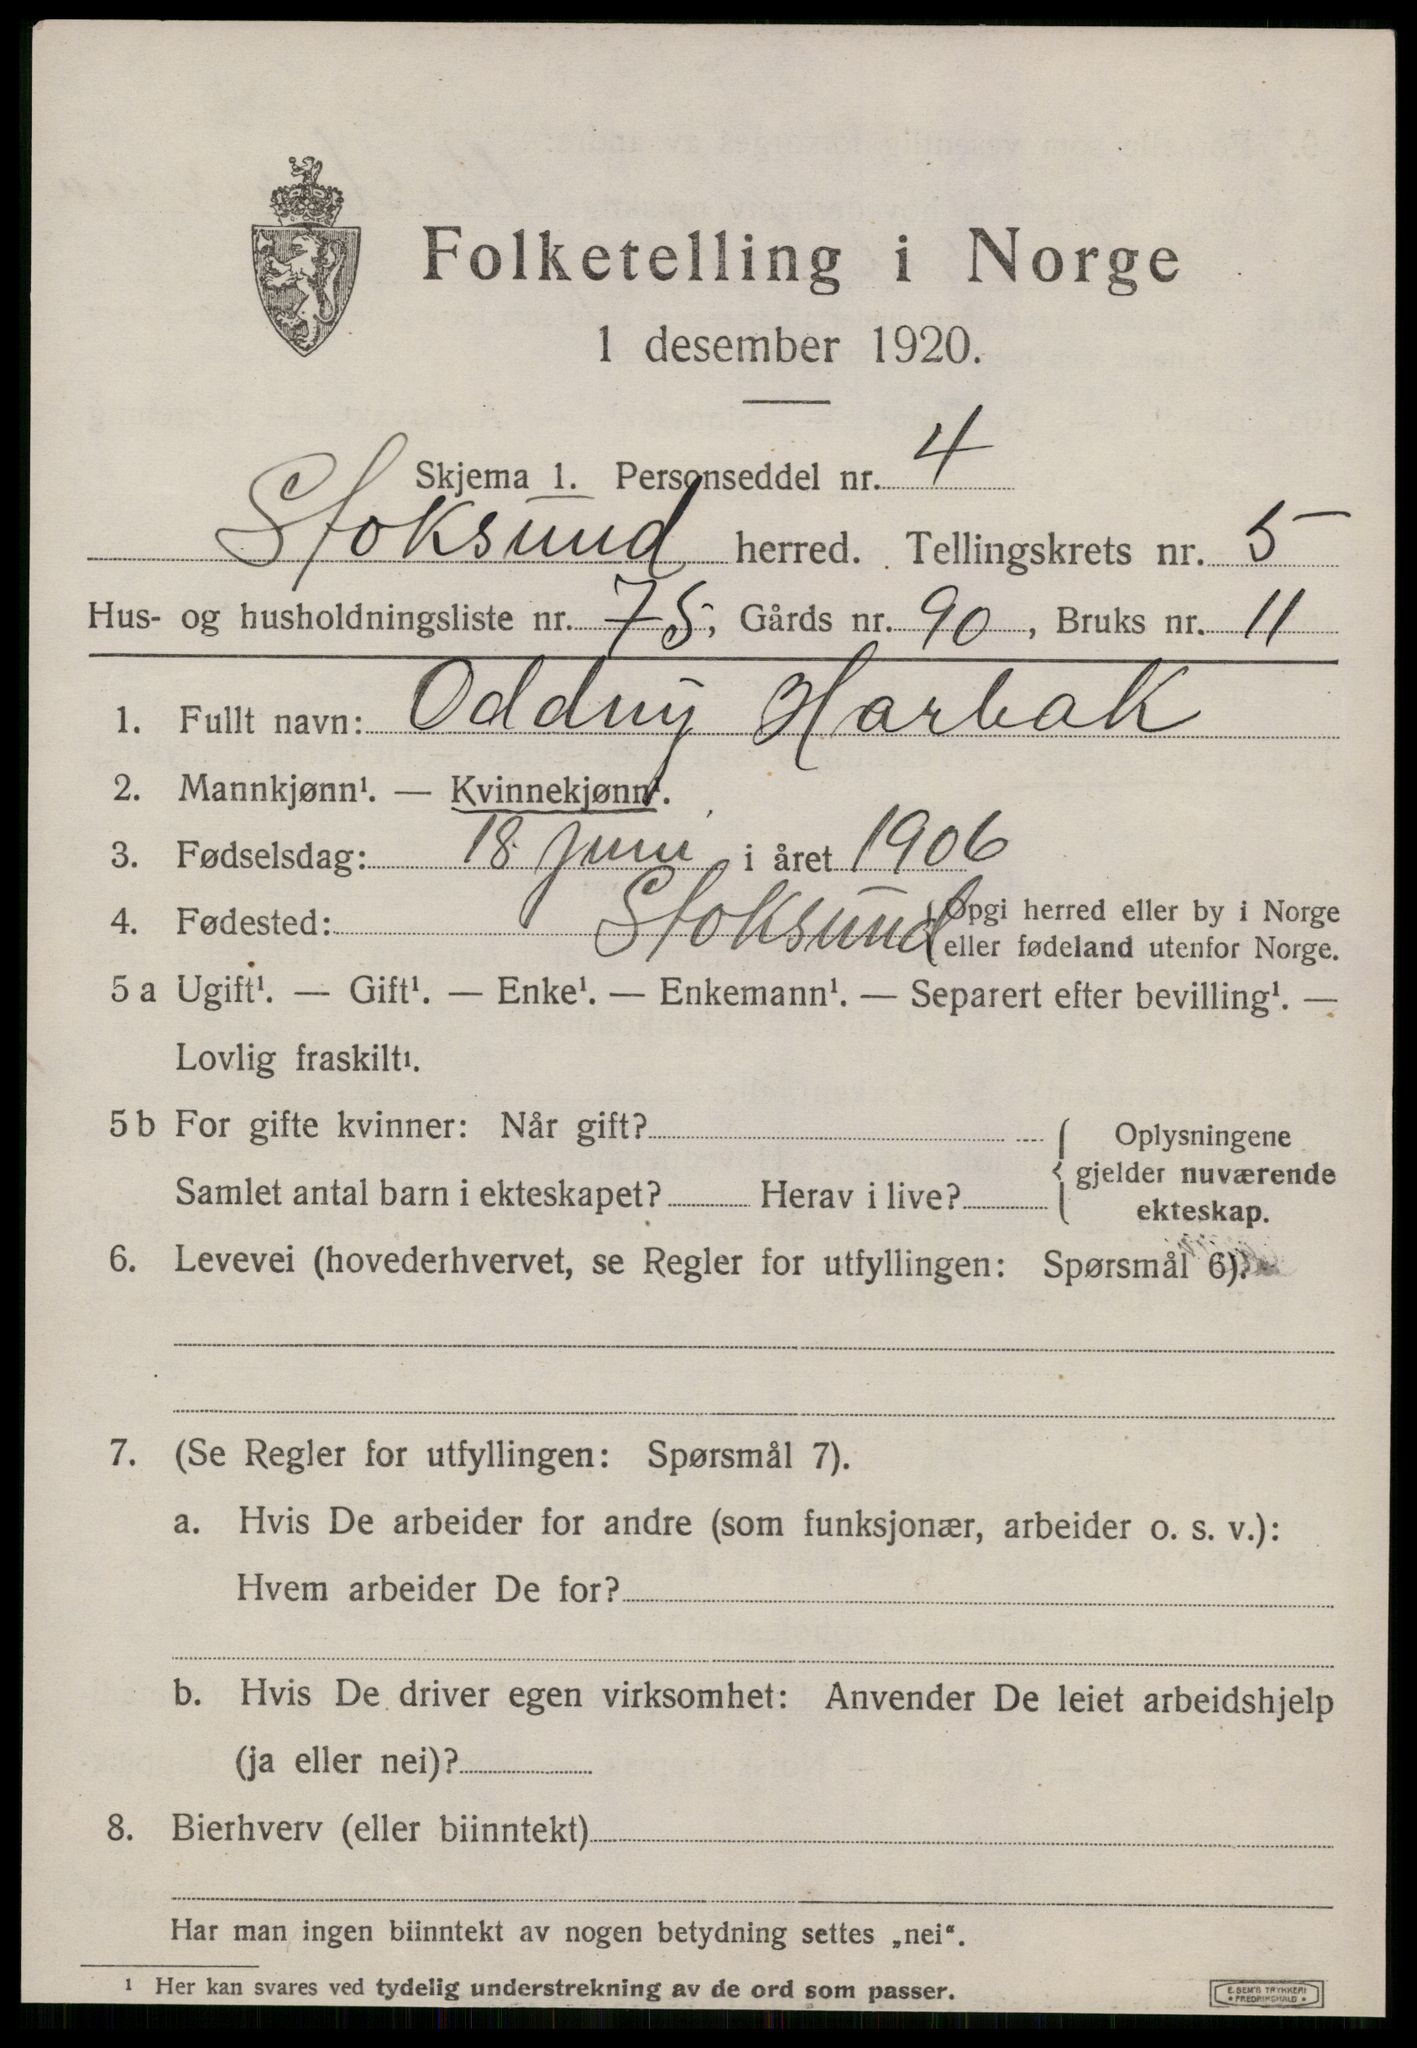 Folketelling i Norge
1 desember 1920.
Skjema 1. Personseddel nr. 4
Stoksund herred. Tellingskrets nr. 5
Hus- og husholdningsliste nr. 75, Gårds nr. 90, Bruks nr. 11
1. Fullt navn: Oddny Harbak
2. Mannkjønn¹. — Kvinnekjønn¹.
3. Fødselsdag: 18 juni i året 1906
4. Fødested: Stoksund { Opgi herred eller by i Norge
eller fødeland utenfor Norge.
5 a Ugift¹. — Gift¹. — Enke¹. — Enkemann¹. — Separert efter bevilling¹. —
Lovlig fraskilt¹.
5 b For gifte kvinner: Når gift? { Oplysningene
gjelder nuværende
Samlet antal barn i ekteskapet? Herav i live?
ekteskap.
6. Levevei (hovederhvervet, se Regler for utfyllingen: Spørsmål 6).
7. (Se Regler for utfyllingen: Spørsmål 7).
a. Hvis De arbeider for andre (som funksjonær, arbeider o. s. v.):
Hvem arbeider De for?
b. Hvis De driver egen virksomhet: Anvender De leiet arbeidshjelp
(ja eller nei)?
8. Bierhverv (eller biinntekt)
Har man ingen biinntekt av nogen betydning settes „nei“.
¹ Her kan svares ved tydelig understrekning av de ord som passer.
E. SEM'S TRYKKERI
* FREDRIKSHALD *